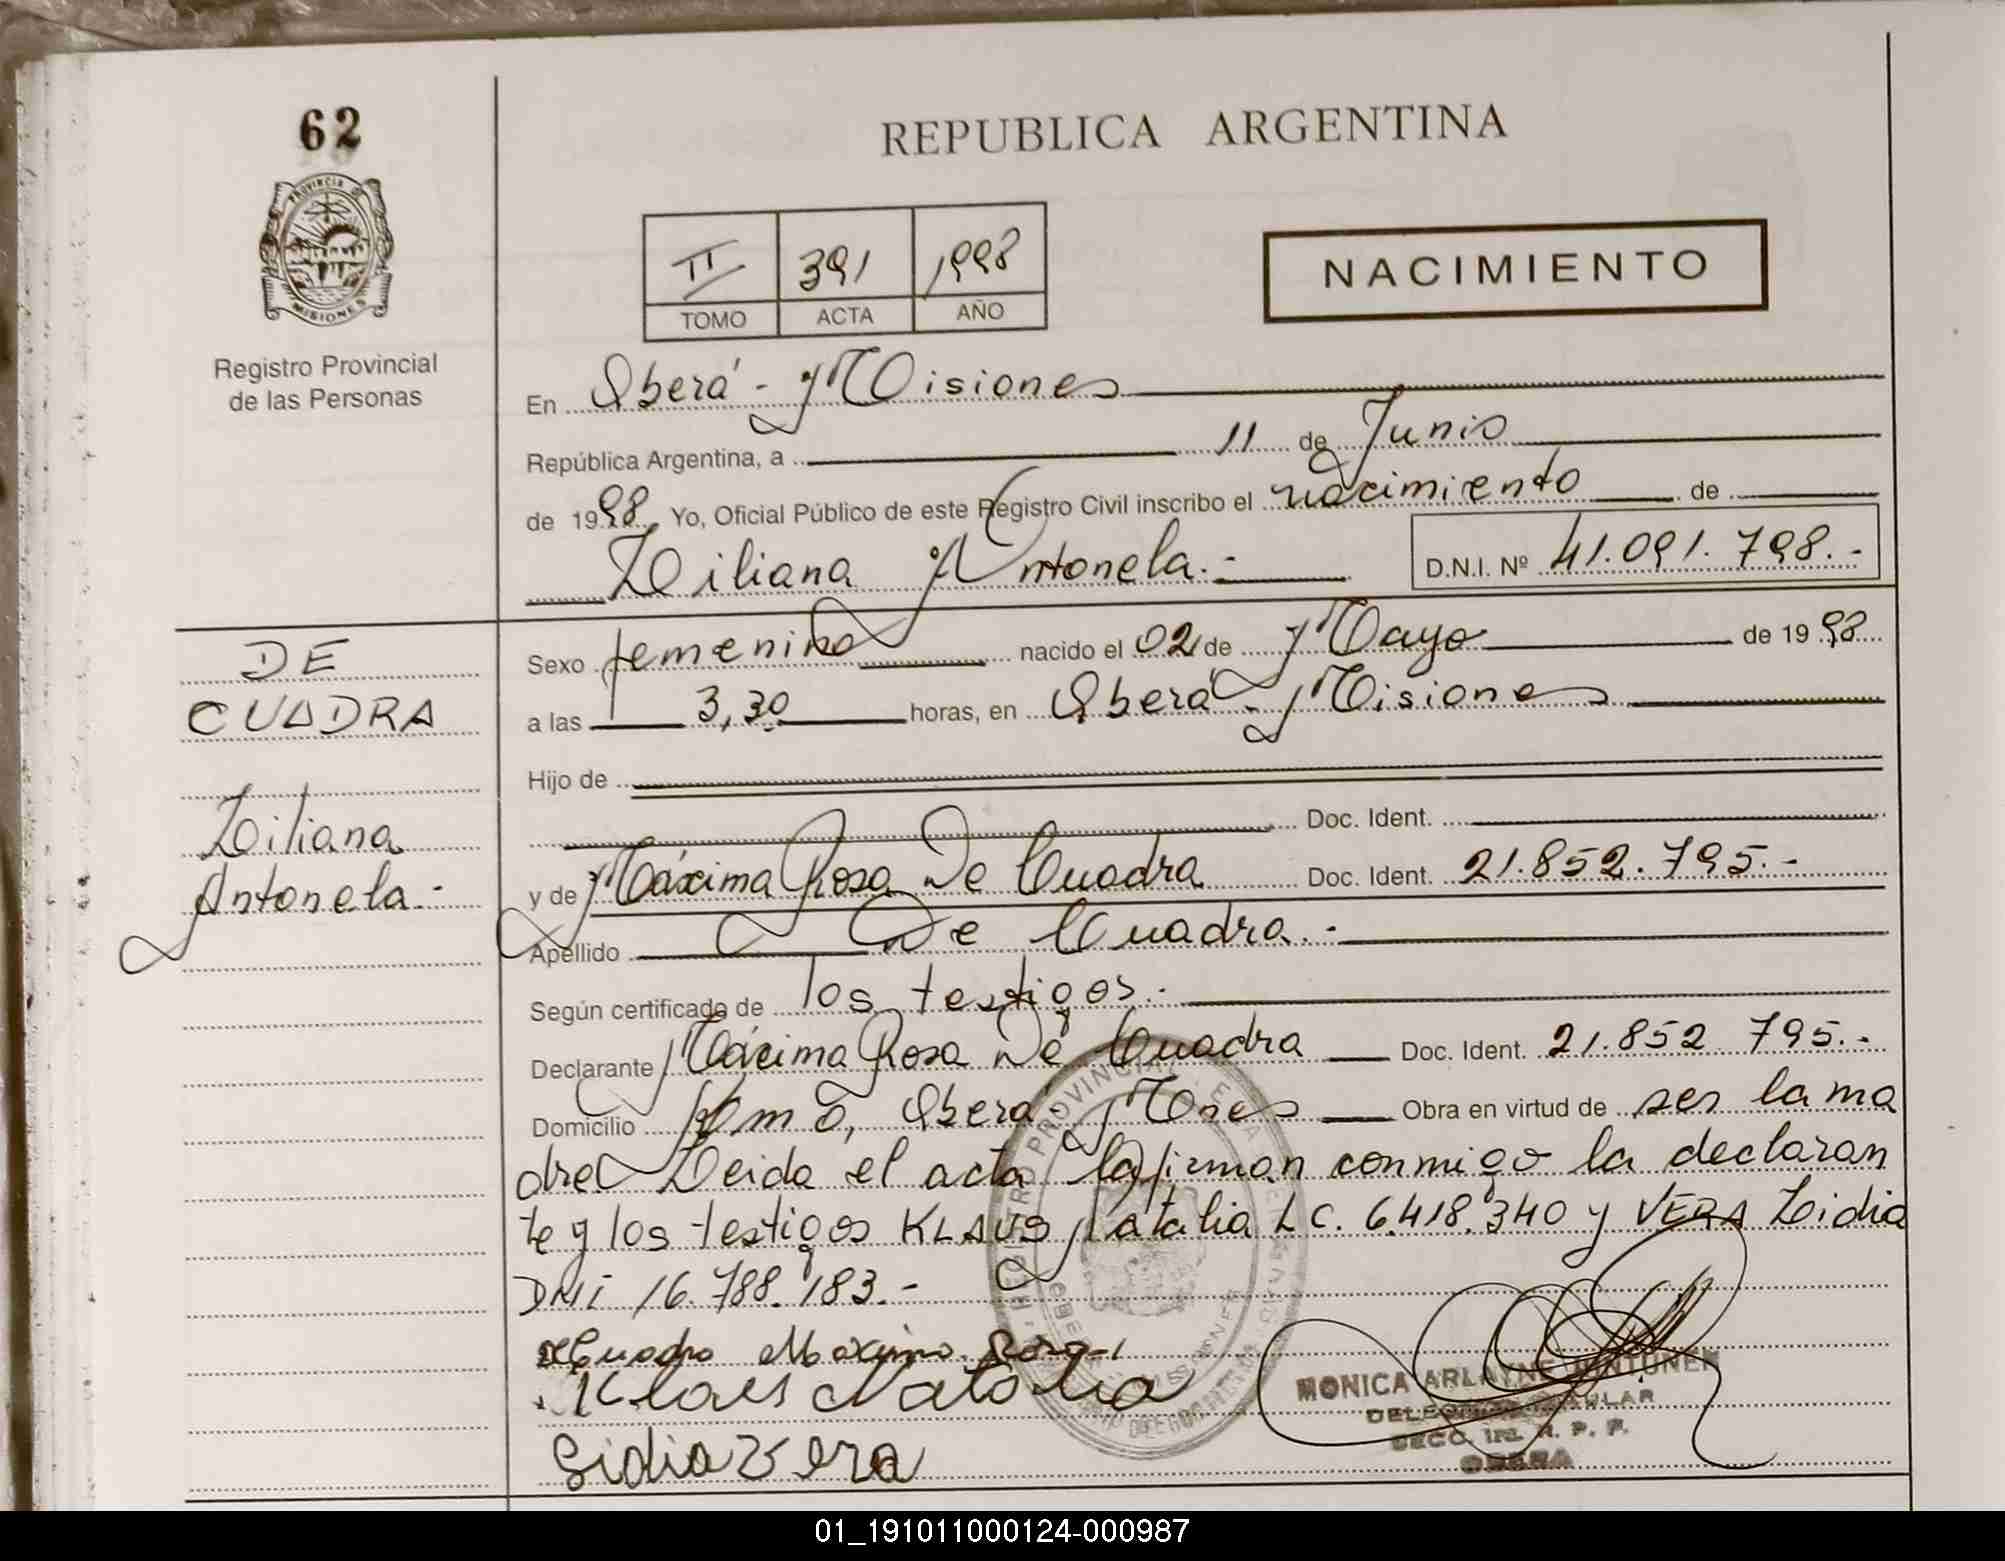 62
PROVINCIA D
MISIONES
Registro Provincial
de las Personas
REPUBLICA ARGENTINA
II 391 1998
TOMO ACTA AÑO
NACIMIENTO
En Oberá - Misiones
República Argentina, a 11 de Junio
de 1998 Yo, Oficial Público de este Registro Civil inscribo el nacimiento de
Liliana Antonela.-
D.N.I. Nº 41.091.798.-
DE
CUADRA
Liliana
Antonela.-
Sexo femenino nacido el 02 de Mayo de 1998
a las 3,30 horas, en Oberá - Misiones
Hijo de
Doc. Ident.
y de Máxima Rosa De Cuadra Doc. Ident. 21.852.795.-
Apellido De Cuadra.-
Según certificado de los testigos.-
Declarante Máxima Rosa De Cuadra Doc. Ident. 21.852 795.-
Domicilio Oberá, Mnes Obra en virtud de ser la ma
dre Leida el acta la firman conmigo la declaran
te y los testigos KLAUS Natalia LC. 6.418.340 y VERA Lidia
DNi 16.788.183.-
de Cuadra Maxima Rosa
Klaus Natalia
Lidia Vera
MONICA ARLAYNE
OBERA
01_191011000124-000987